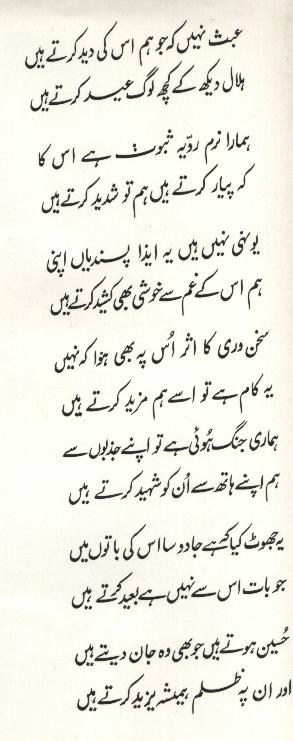 عبث نہیں کہ جو ہم اس کی دید کرتے ہیں
ہلال دیکھ کے کچھ لوگ عید کرتے ہیں
ہمارا نرم رویّہ ثبوت ہے اس کا
کہ پیار کرتے ہیں ہم تو شدید کرتے ہیں
یونہی نہیں ہیں یہ ایذا پسندیاں اپنی
ہم اس کے غم سے خوشی بھی کشید کرتے ہیں
سخن وری کا اثر اُس پہ بھی ہؤا کہ نہیں
یہ کام ہے تو اسے ہم مزید کرتے ہیں
ہماری جنگ ہُوئی ہے تو اپنے جذبوں سے
ہم اپنے ہاتھ سے اُن کو شہید کرتے ہیں
یہ جھوٹ کیا کہ ہے جادو سا اس کی باتوں میں
جو بات اس سے نہیں ہے بعید کرتے ہیں
حُسین ہوتے ہیں جو بھی وہ جان دیتے ہیں
اور ان پہ ظلم ہمیشہ یزید کرتے ہیں